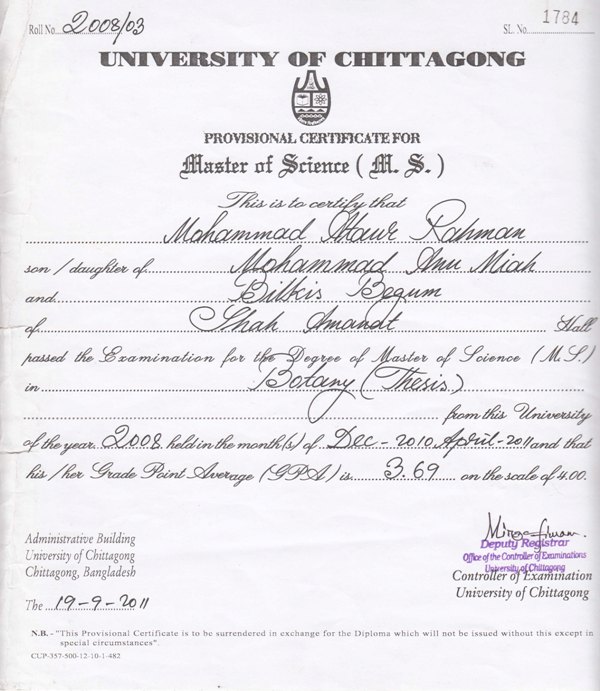 Roll No. 2008/03
SL. No. 1784
UNIVERSITY OF CHITTAGONG
PROVISIONAL CERTIFICATE FOR
Master of Science ( M. S. )
This is to certify that
Mohammad Ataur Rahman
son / daughter of Mohammad Anu Miah
and Bilkis Begum
of Shah Amanat Hall
passed the Examination for the Degree of Master of Science (M.S.)
in Botany (Thesis)
from this University
of the year 2008 held in the month(s) of Dec-2010 April-2011 and that
his / her Grade Point Average (GPA) is 3.69 on the scale of 4.00.
Administrative Building
University of Chittagong
Chittagong, Bangladesh
The 19-9-2011
Deputy Registrar
Office of the Controller of Examinations
University of Chittagong
Controller of Examination
University of Chittagong
N.B. - "This Provisional Certificate is to be surrendered in exchange for the Diploma which will not be issued without this except in
special circumstances".
CUP-357-500-12-10-1-482